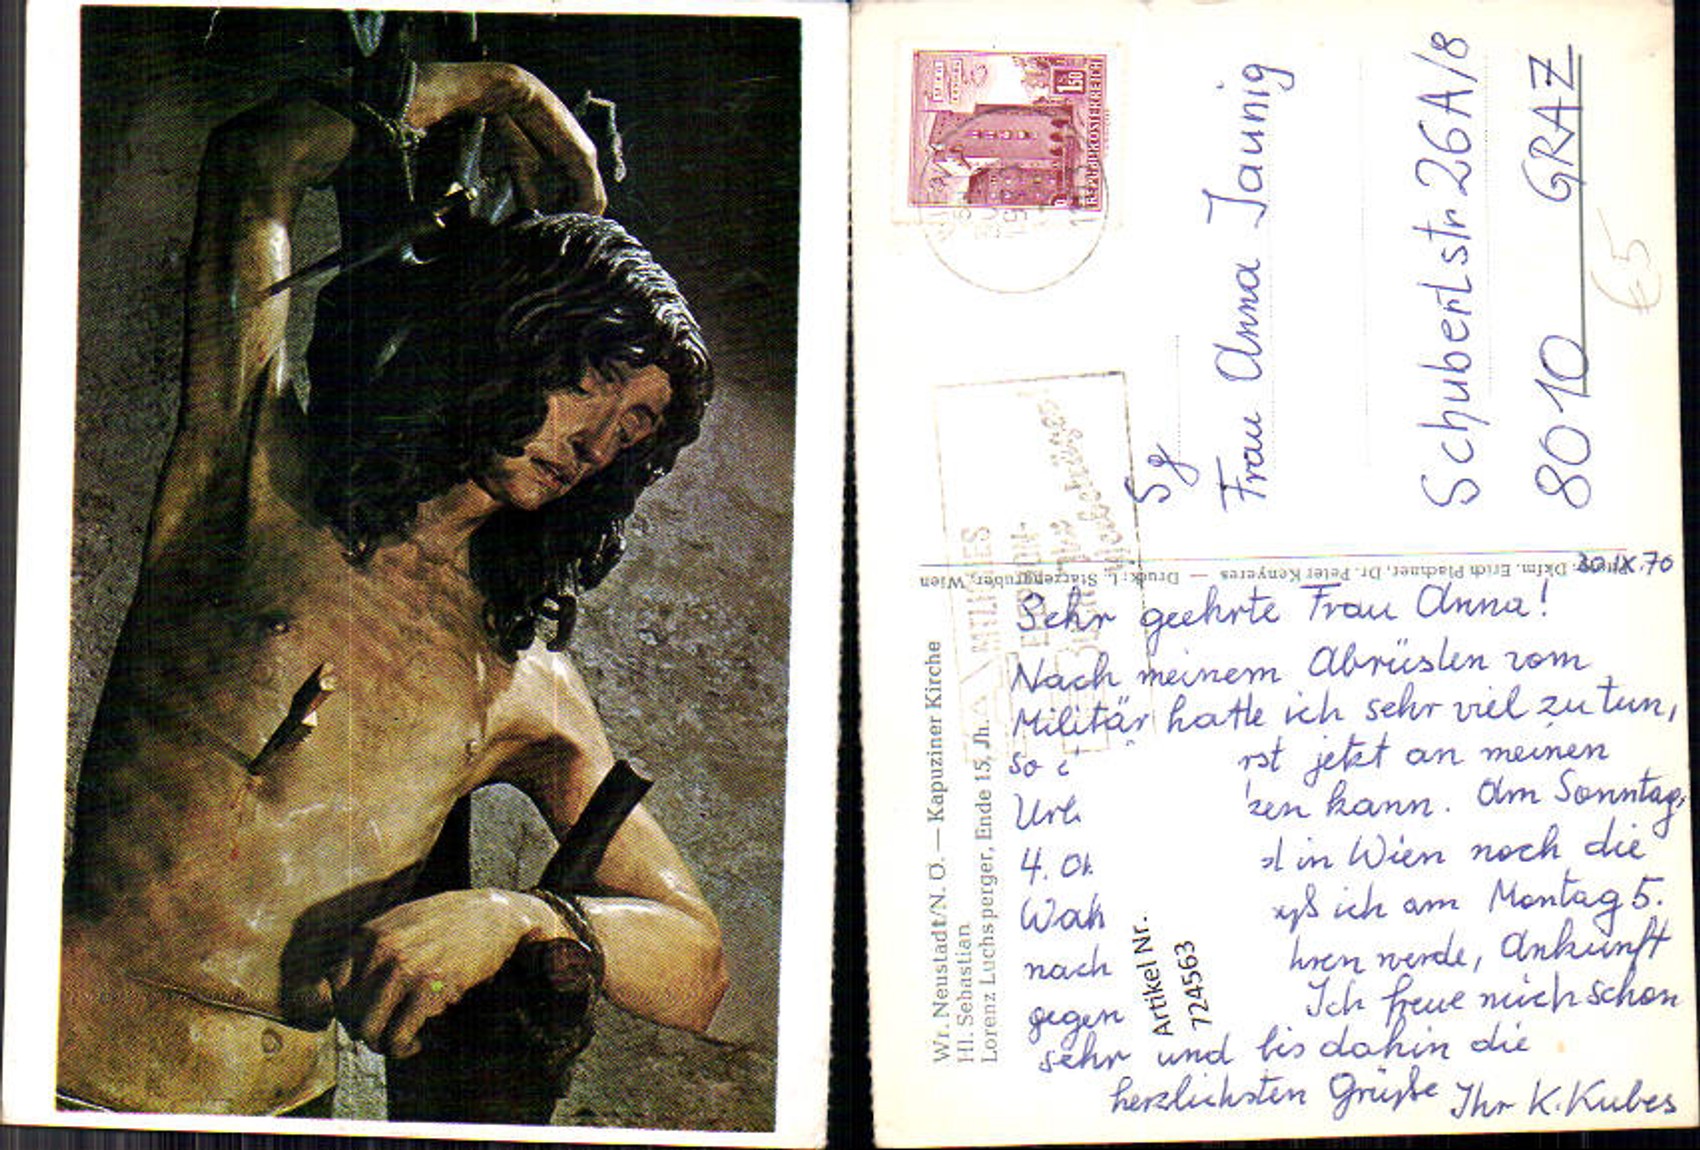 1.50
REPUBLIK ÖSTERREICH
Sg
Frau Anna Jaunig
Schubertstr 26A/8
8010 GRAZ
€5
AMTLICHES
Dkfm. Erich Plachner, Dr. Peter Kenyeres — Druck: L. Starzengruber, Wien
Wr. Neustadt/N. Ö. — Kapuziner Kirche
Hl. Sebastian
Lorenz Luchsperger, Ende 15. Jh.
30.IX.70
Sehr geehrte Frau Anna!
Nach meinem Abrüsten vom
Militär hatte ich sehr viel zu tun,
so jetzt an meinen
kann. Am Sonntag,
4. in Wien noch die
ich am Montag 5.
nach werde, Ankunft
gegen Ich freue mich schon
sehr und bis dahin die
herzlichsten Grüße Ihr K. Kubes
Artikel Nr.
724563